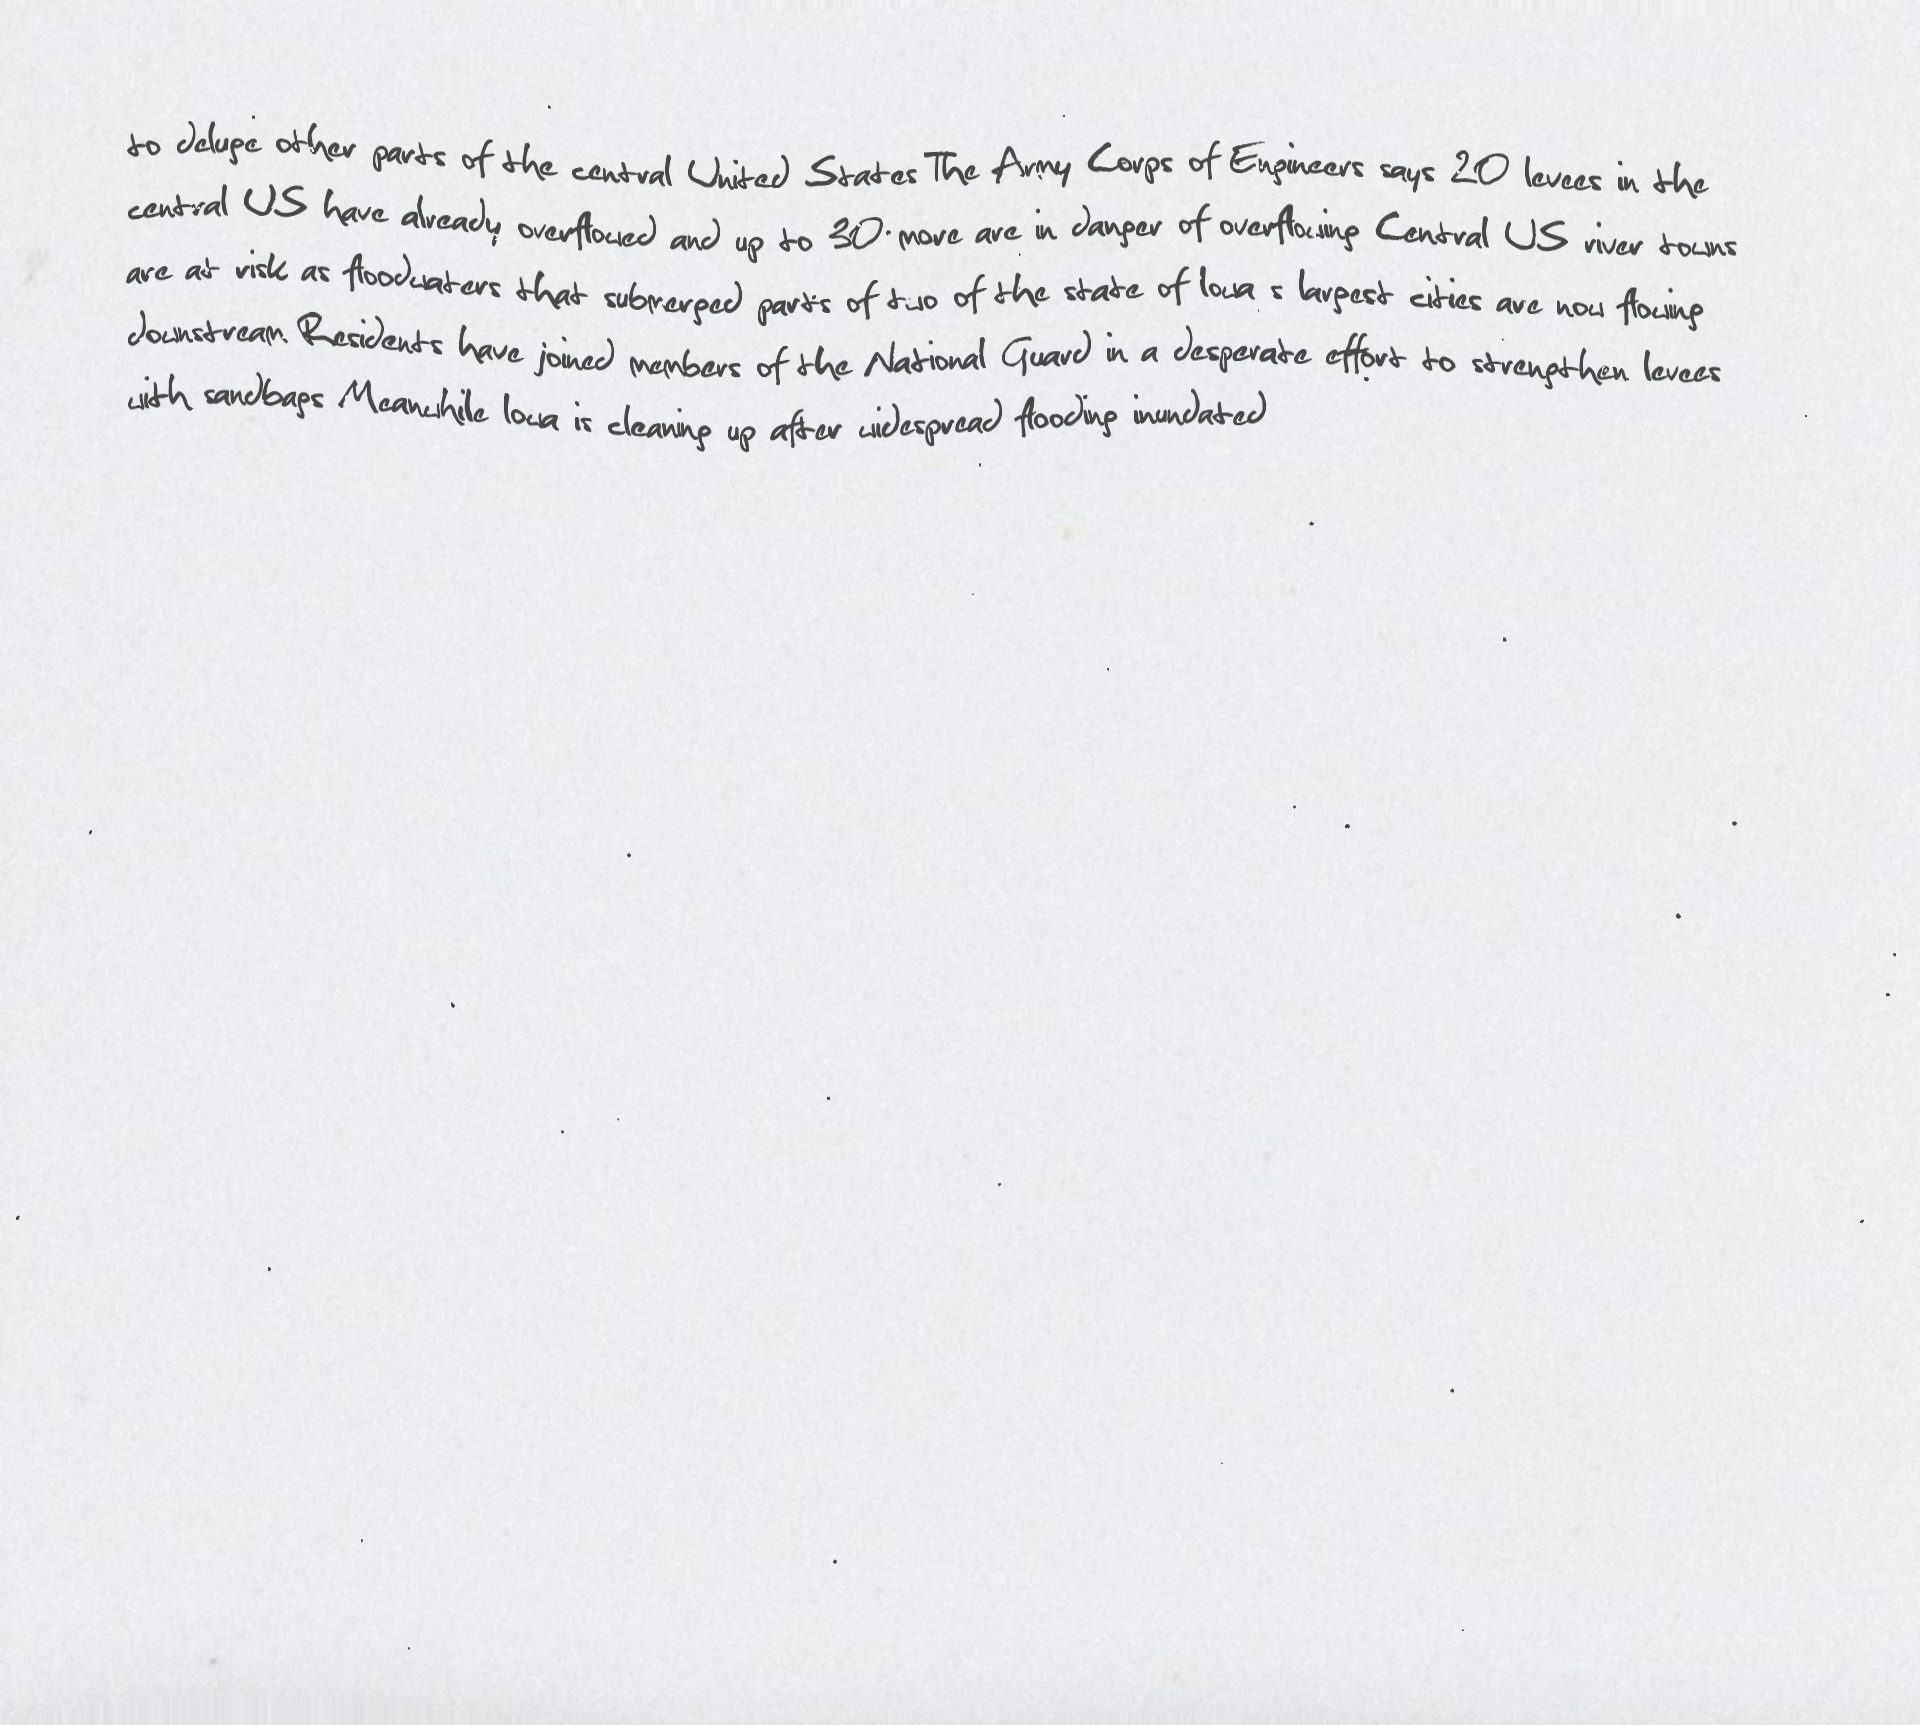 to deluge other parts of the central United States The Army Corps of Engineers says 20 levees in the
central US have already overflowed and up to 30 more are in danger of overflowing Central US river towns
are at risk as floodwaters that submerged parts of two of the state of Iowa s largest cities are now flowing
downstream. Residents have joined members of the National Guard in a desperate effort to strengthen levees
with sandbags Meanwhile Iowa is cleaning up after widespread flooding inundated